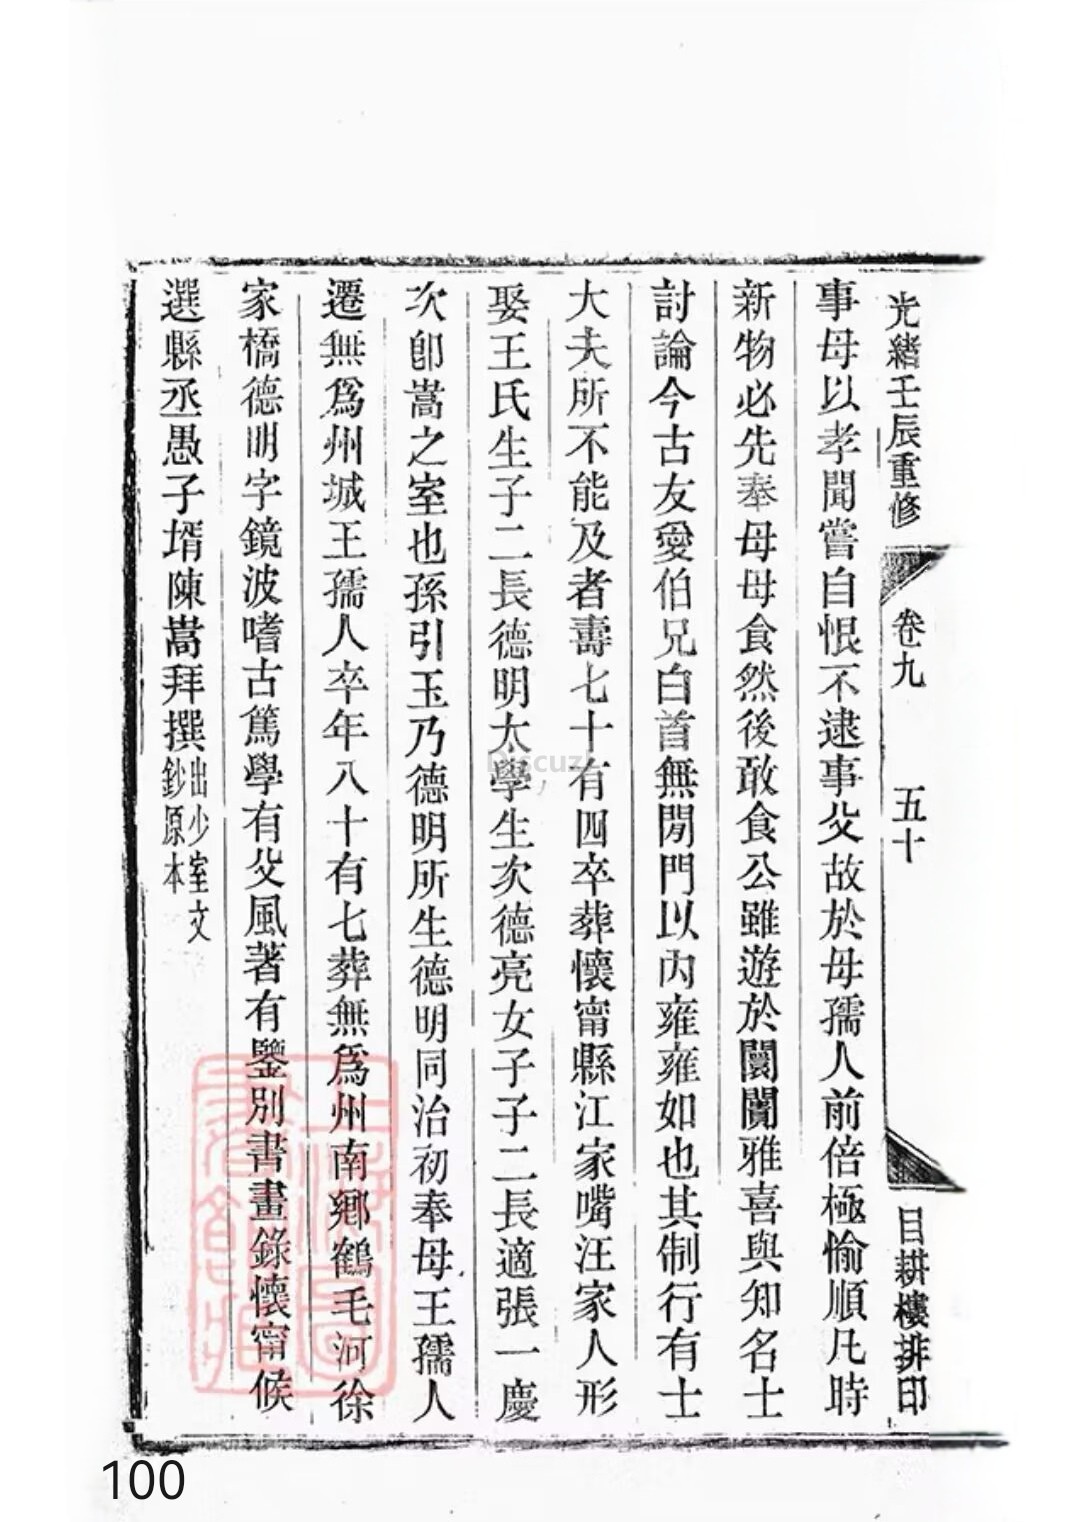 光緒壬辰重修
卷九
五十
目耕樓排印
事母以孝聞嘗自恨不逮事父故於母孺人前倍極愉順凡時
新物必先奉母母食然後敢食公雖遊於闤闠雅喜與知名士
討論今古友愛伯兄白首無閒門以內雍雍如也其制行有士
大夫所不能及者壽七十有四卒葬懷甯縣江家嘴汪家人形
娶王氏生子二長德明太學生次德亮女子子二長適張一慶
次卽嵩之室也孫引玉乃德明所生德明同治初奉母王孺人
遷無爲州城王孺人卒年八十有七葬無爲州南鄉鶴毛河徐
家橋德明字鏡波嗜古篤學有父風著有鑒別書畫錄懷甯候
選縣丞愚子壻陳嵩拜撰出少室文
鈔原本
Discuz!
100